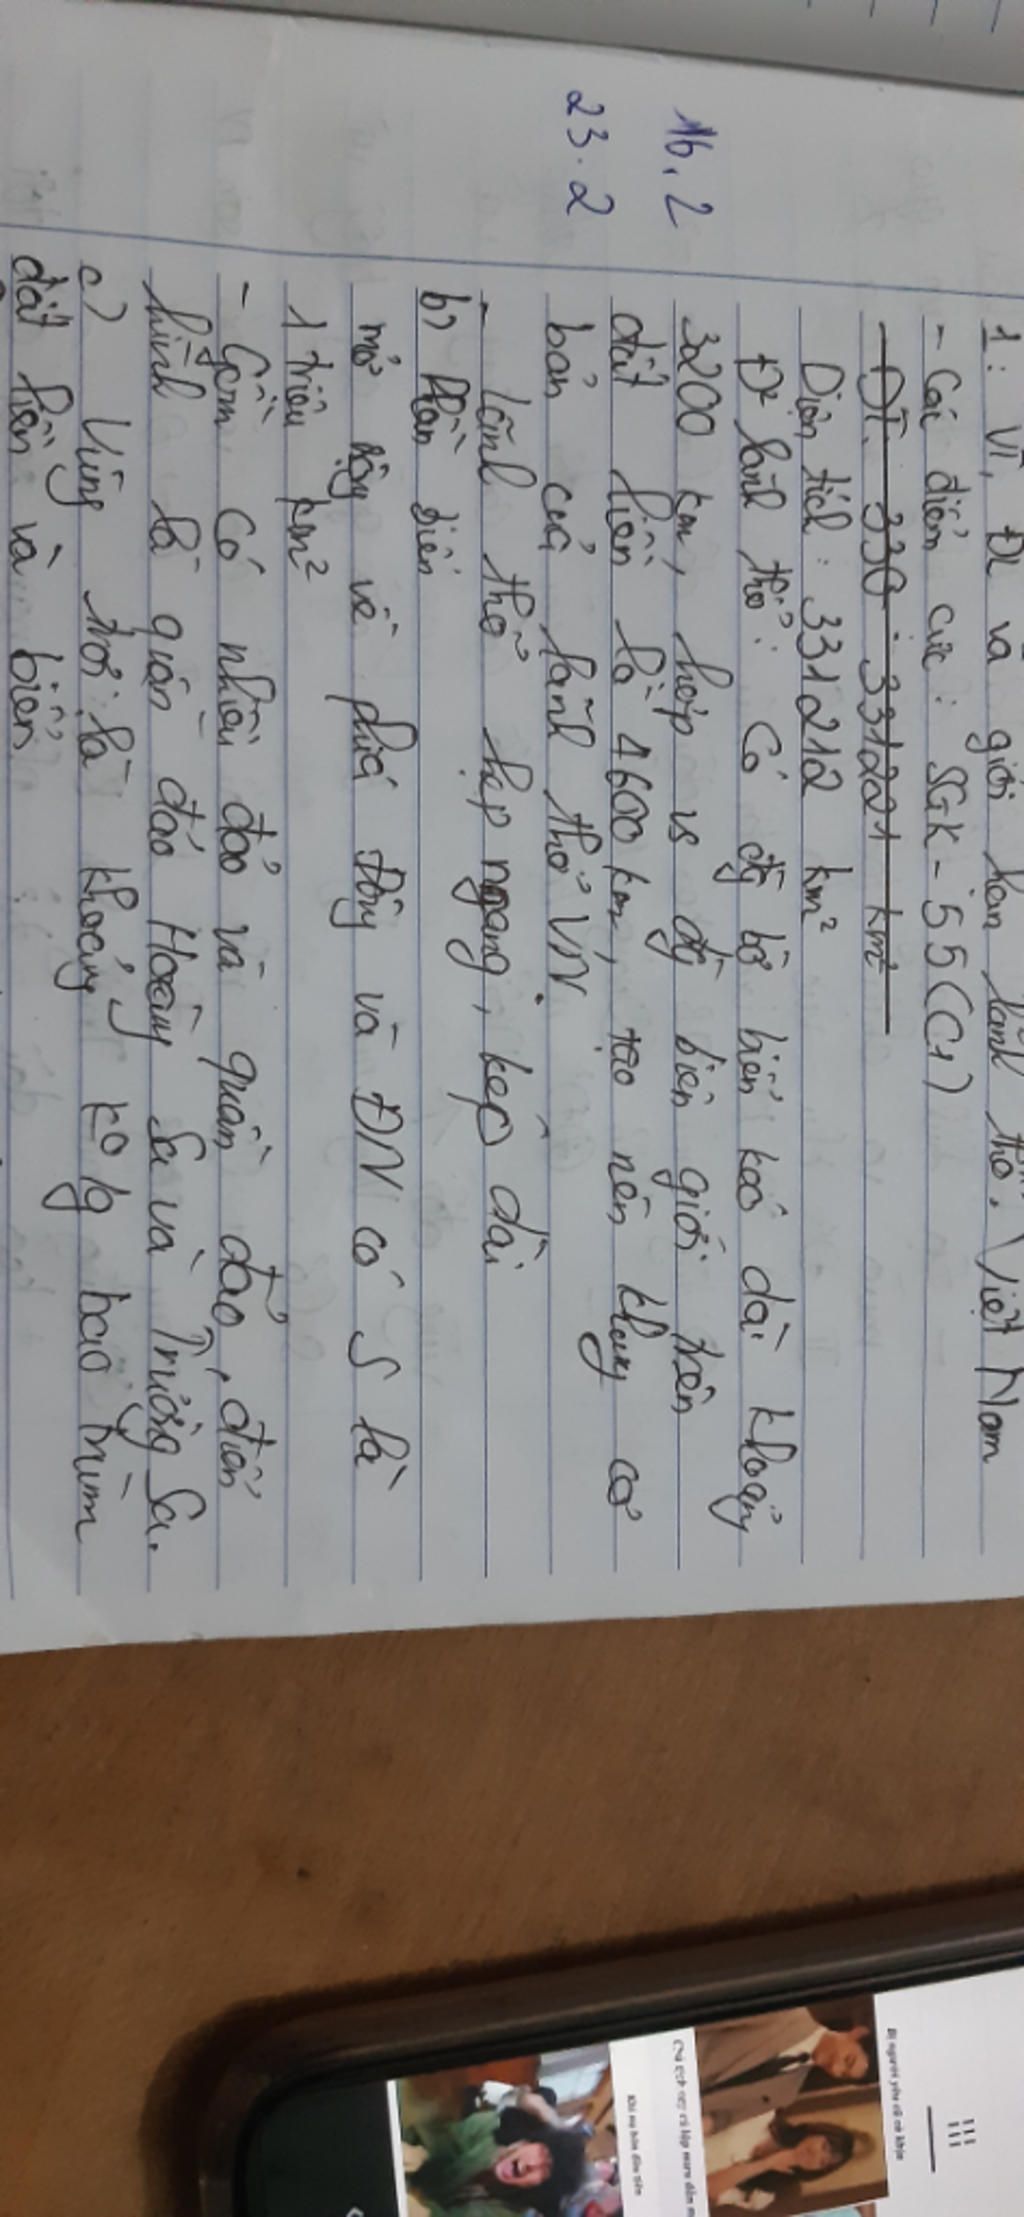 1: Vì, ĐL và giới hạn lãnh thổ. Việt Nam
- Các điểm cực: SGK - 55 (C1)
DT. 330 : 331221 km²
Diện tích: 331212 km²
Đ² lãnh thổ: Có đg bờ biển kéo dài khoảng
16.2
3200 km, hợp vs đg biên giới trên
đất liền là 4600 km, tạo nên khung cơ
23.2
bản của lãnh thổ VN.
- Lãnh thổ hẹp ngang, kéo dài
b) Phần biển
mở rộng về phía Đông và ĐN có S là
1 triệu km²
- Gồm có nhiều đảo và quần đảo, điển
hình là quần đảo Hoàng Sa và Trường Sa.
c) Vùng trời: là khoảng k0 g bao trùm
đất liền và biển
Bị người yêu cũ cà khịa
Khi mẹ bón đầu tiên